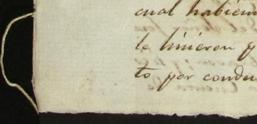 cual habién
le hicieron q
to por condu